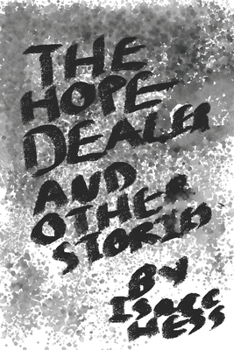 THE
HOPE
DEALER
AND
OTHER
STORIES
BY
ISAAC
NESS